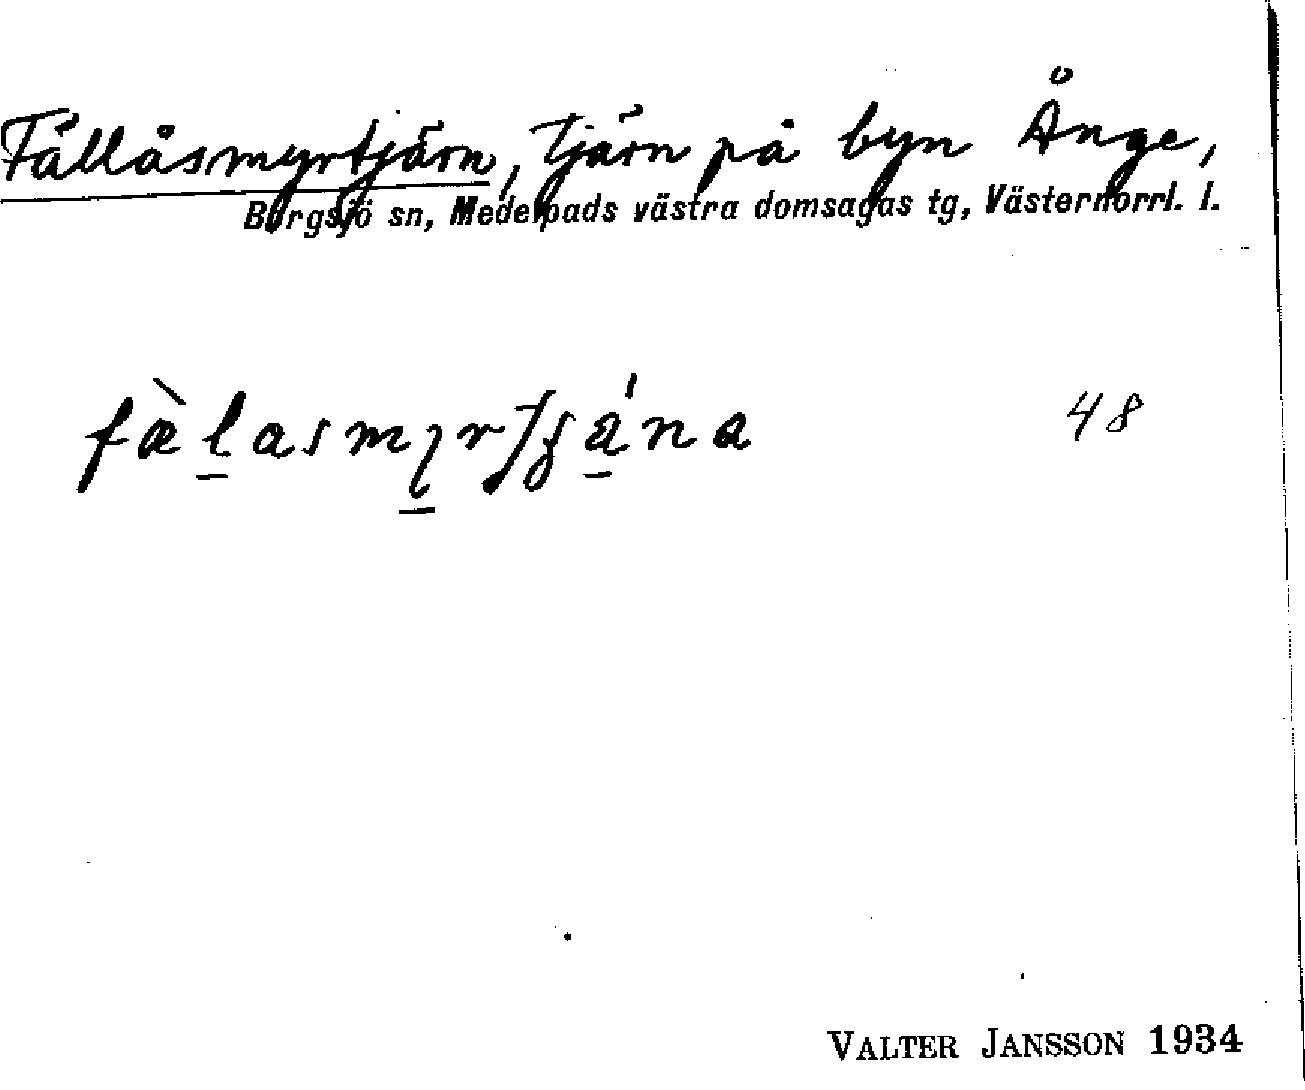 Fällåsmyrtjärn, Tjärn på byn Ånge,
Borgsjö sn, Medelpads västra domsagas tg, Västernorrl. l.
48
VALTER JANSSON 1934